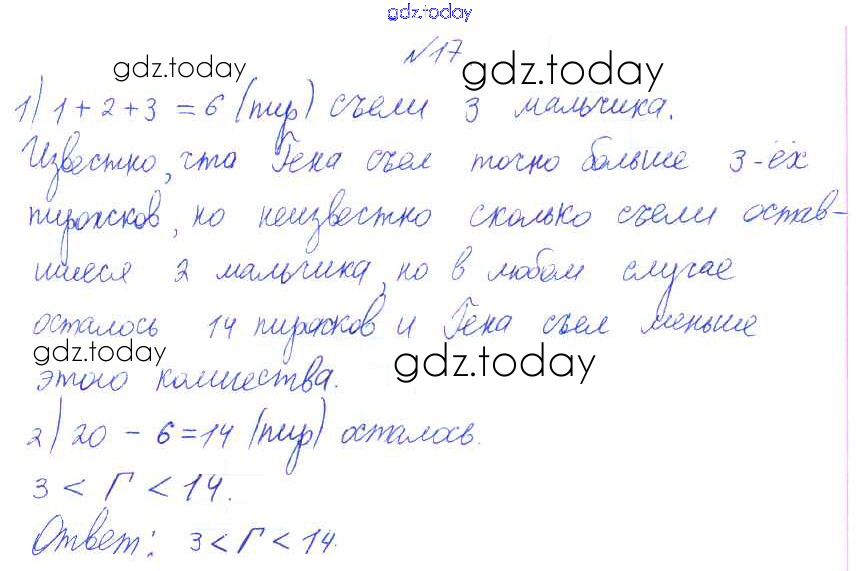 gdz.today
№17
gdz.today gdz.today
1) 1 + 2 + 3 = 6 (пир) съели 3 мальчика.
Известно, что Гена съел точно больше 3-ёх
пирожков, но неизвестно сколько съели остав-
шиеся 2 мальчика, но в любом случае
осталось 14 пирожков и Гена съел меньше
gdz.today gdz.today
этого количества.
2) 20 - 6 = 14 (пир) осталось.
3 < Г < 14.
Ответ: 3 < Г < 14.